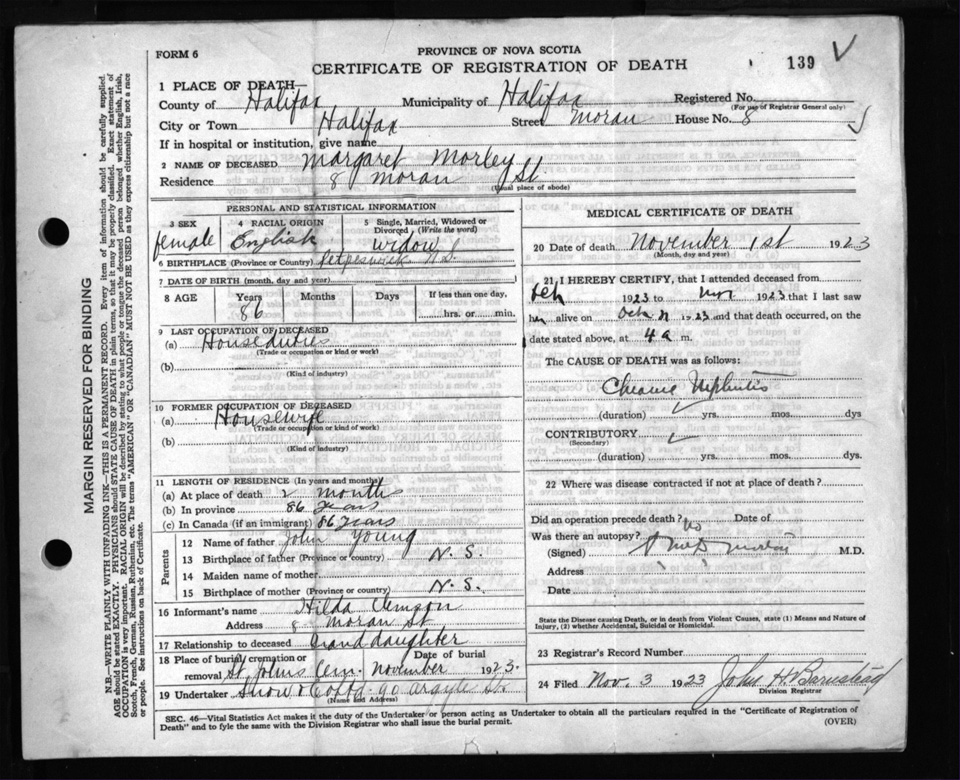 FORM 6
PROVINCE OF NOVA SCOTIA
CERTIFICATE OF REGISTRATION OF DEATH
139
1 PLACE OF DEATH—
County of Halifax Municipality of Halifax Registered No.
(For use of Registrar General only)
City or Town Halifax Street Moran House No. 8
If in hospital or institution, give name
2 NAME OF DECEASED Margaret Morley
Residence 8 Moran St
(Usual place of abode)
PERSONAL AND STATISTICAL INFORMATION
3 SEX 4 RACIAL ORIGIN 5 Single, Married, Widowed or Divorced (Write the word)
female English widow
6 BIRTHPLACE (Province or Country) Petpeswick N.S.
7 DATE OF BIRTH (month, day and year)
8 AGE Years Months Days If less than one day,
86 hrs. or min.
9 LAST OCCUPATION OF DECEASED
(a) House duties
(Trade or occupation or kind of work)
(b)
(Kind of industry)
10 FORMER OCCUPATION OF DECEASED
(a) Housewife
(Trade or occupation or kind of work)
(b)
(Kind of industry)
11 LENGTH OF RESIDENCE (In years and months)
(a) At place of death month
(b) In province 86 years
(c) In Canada (if an immigrant) 86 years
Parents
12 Name of father John Young
13 Birthplace of father (Province or country) N. S.
14 Maiden name of mother
15 Birthplace of mother (Province or country) N. S.
16 Informant's name Hilda
Address 8 Moran St
17 Relationship to deceased Grand daughter
18 Place of burial, cremation or removal Date of burial
St Johns Cem. November 1923.
19 Undertaker Snow 90 Argyle St.
(Name and Address)
MEDICAL CERTIFICATE OF DEATH
20 Date of death November 1st 1923
(Month, day and year)
21 I HEREBY CERTIFY, that I attended deceased from
1923 to Nov 1923 that I last saw
her alive on 1923 and that death occurred, on
date stated above, at 4 a m.
The CAUSE OF DEATH was as follows:
Chronic Nephritis
(duration) yrs. mos. dys
CONTRIBUTORY
(Secondary)
(duration) yrs. mos. dys.
22 Where was disease contracted if not at place of death?
Did an operation precede death? no Date of
Was there an autopsy?
(Signed) M.D.
Address
Date
State the Disease causing Death, or in death from Violent Causes, state (1) Means and Nature of
Injury, (2) whether Accidental, Suicidal or Homicidal.
23 Registrar's Record Number
24 Filed Nov. 3 1923 John H Barnstead
Division Registrar
SEC. 46—Vital Statistics Act makes it the duty of the Undertaker or person acting as Undertaker to obtain all the particulars required in the "Certificate of Registration of
Death" and to fyle the same with the Division Registrar who shall issue the burial permit.
(OVER)
MARGIN RESERVED FOR BINDING
N.B.—WRITE PLAINLY WITH UNFADING INK—THIS IS A PERMANENT RECORD. Every item of information should be carefully supplied.
AGE should be stated EXACTLY. PHYSICIANS should STATE CAUSE OF DEATH in plain terms, so that it may be properly classified. Exact statement of
OCCUPATION is very important. RACIAL ORIGIN will be described by stating to what people or tongue the deceased person belonged whether English, Irish,
Scotch, French, German, Russian, Ruthenian, etc. The terms "AMERICAN" OR "CANADIAN" MUST NOT BE USED as they express citizenship but not a race
or people. See instructions on back of Certificate.